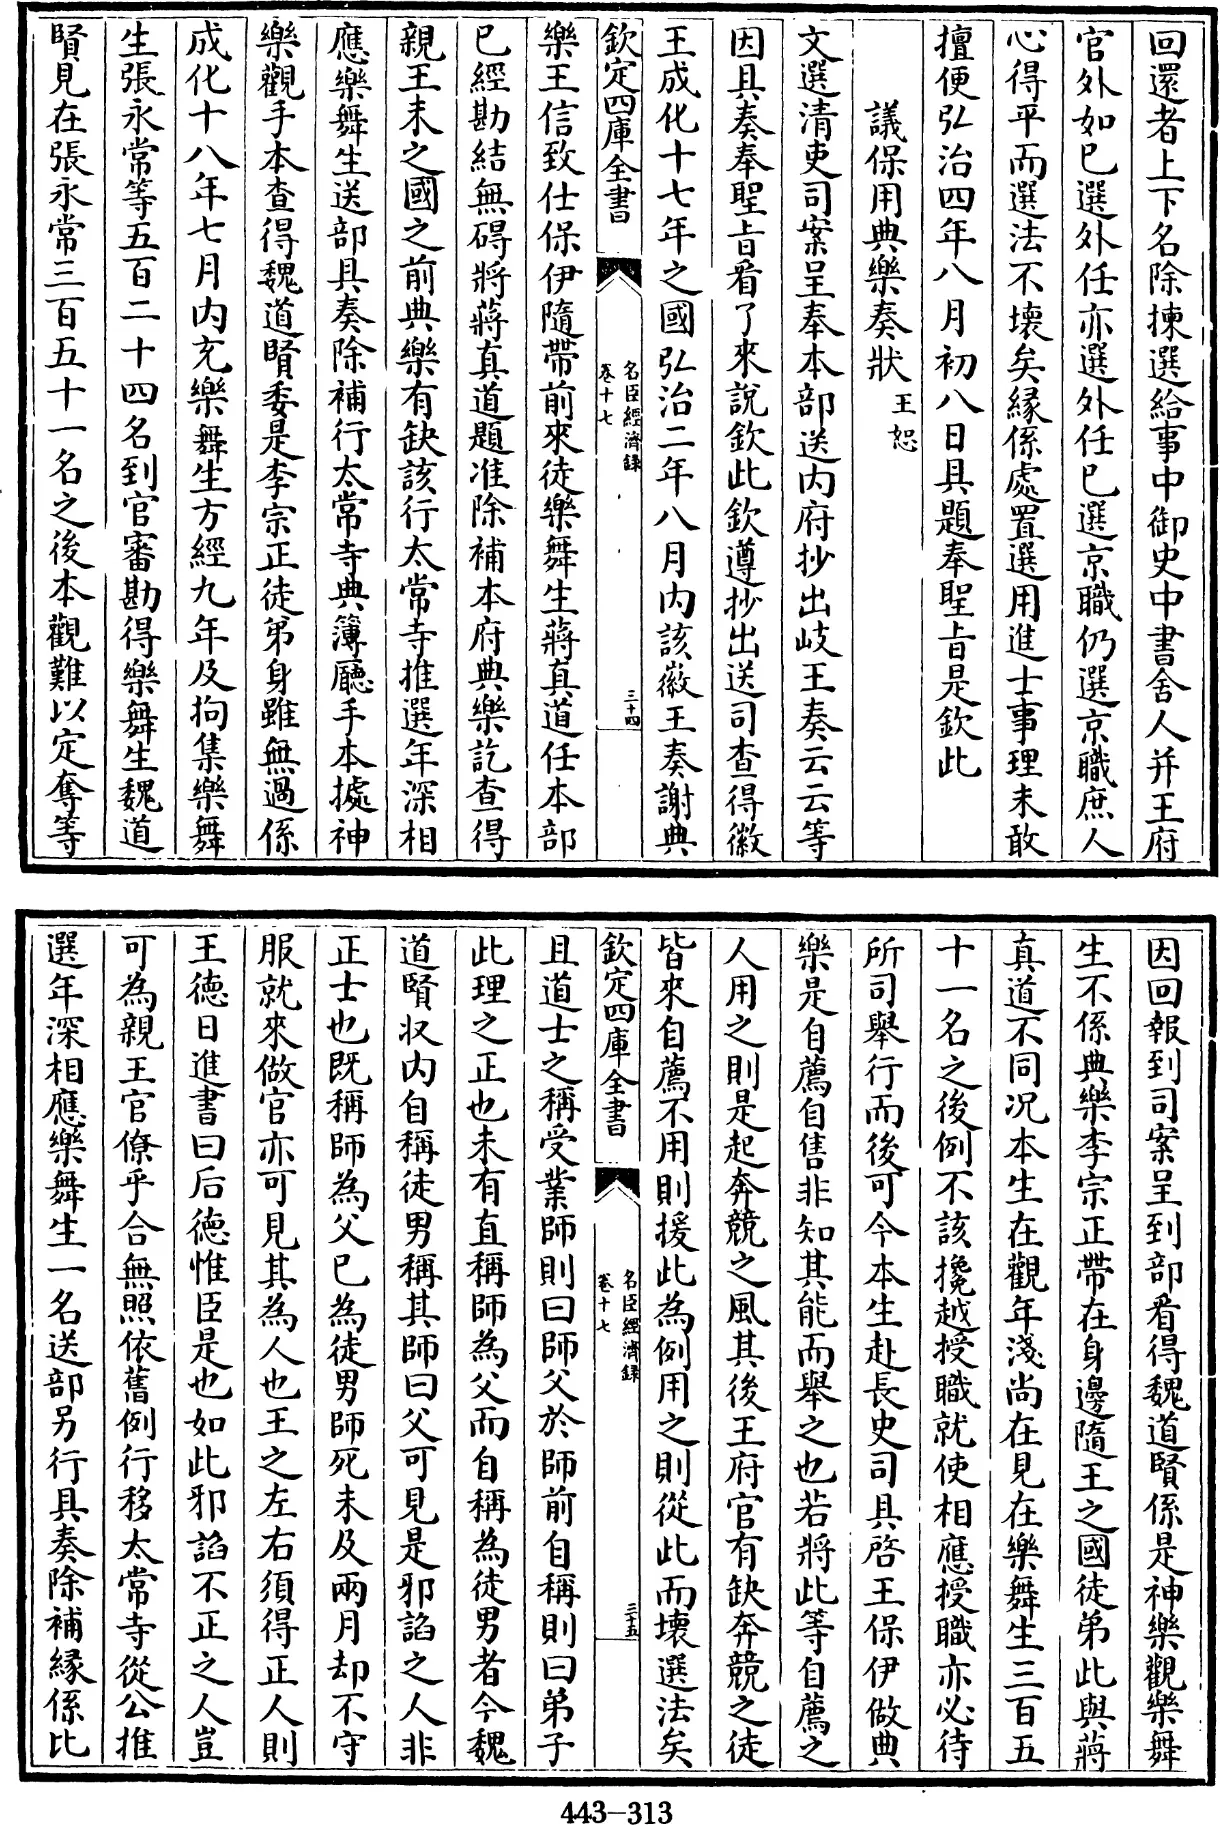 回還者上下名除揀選給事中御史中書舍人并王府
官外如已選外任亦選外任已選京職仍選京職庶人
心得平而選法不壞矣緣係處置選用進士事理未敢
擅便弘治四年八月初八日具題奉聖旨是欽此
議保用典樂奏狀 王恕
文選清吏司案呈奉本部送內府抄出岐王奏云云等
因具奏奉聖旨看了來說欽此欽遵抄出送司查得徽
王成化十七年之國弘治二年八月內該徽王奏謝典
欽定四庫全書
名臣經濟錄
卷十七
三十四
樂王信致仕保伊隨帶前來徒樂舞生蔣真道任本部
已經勘結無碍將蔣真道題准除補本府典樂訖查得
親王未之國之前典樂有缺該行太常寺推選年深相
應樂舞生送部具奏除補行太常寺典簿廳手本據神
樂觀手本查得魏道賢委是李宗正徒弟身雖無過係
成化十八年七月內充樂舞生方經九年及拘集樂舞
生張永常等五百二十四名到官審勘得樂舞生魏道
賢見在張永常三百五十一名之後本觀難以定奪等
因回報到司案呈到部看得魏道賢係是神樂觀樂舞
生不係典樂李宗正帶在身邊隨王之國徒弟此與蔣
真道不同况本生在觀年淺尚在見在樂舞生三百五
十一名之後例不該攙越授職就使相應授職亦必待
所司舉行而後可今本生赴長史司具啓王保伊做典
樂是自薦自售非知其能而舉之也若將此等自薦之
人用之則是起奔競之風其後王府官有缺奔競之徒
皆來自薦不用則援此為例用之則從此而壞選法矣
欽定四庫全書
名臣經濟錄
卷十七
三十五
且道士之稱受業師則曰師父於師前自稱則曰弟子
此理之正也未有直稱師為父而自稱為徒男者今魏
道賢狀內自稱徒男稱其師曰父可見是邪諂之人非
正士也既稱師為父已為徒男師死未及兩月却不守
服就來做官亦可見其為人也王之左右須得正人則
王德日進書曰后德惟臣是也如此邪諂不正之人豈
可為親王官僚乎合無照依舊例行移太常寺從公推
選年深相應樂舞生一名送部另行具奏除補緣係比
443-313